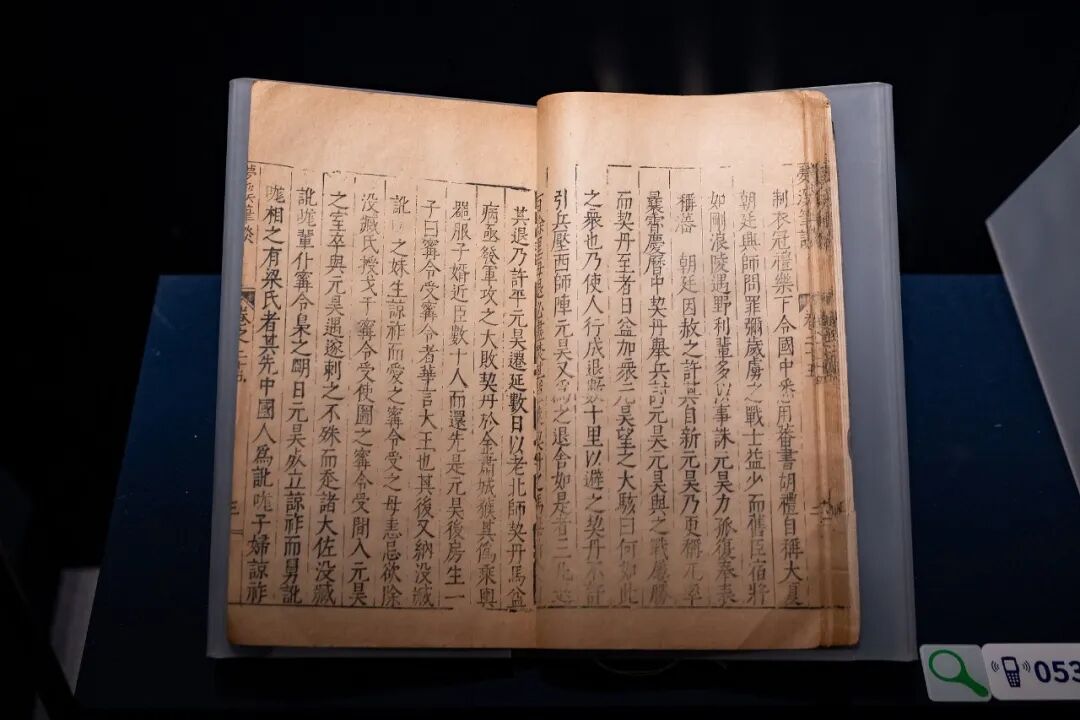 制衣冠禮樂下令國中悉用蕃書胡禮自稱大夏
朝廷興師問罪彌歲虜之戰士益少而舊臣宿將
如剛浪陵遇野利輩多以事誅元昊力孤復奉表
稱藩 朝廷因赦之許其自新元昊乃更稱兀卒
曩霄慶曆中契丹舉兵討元昊元昊與之戰屢勝
而契丹至者日益加衆元昊望之大駭曰何如此
之衆也乃使人行成退數十里以避之契丹不許
引兵壓西師陣元昊又爲之退舍如是者三凡退
其退乃許平元昊遷延數日以老北師契丹馬益
病亟發軍攻之大敗契丹於金肅城獲其僞乘輿
器服子婿近臣數十人而還先是元昊後房生一
子曰甯令受甯令者華言大王也其後又納沒臧
訛 之妹生諒祚而愛之甯令受之母恚忌欲除
沒臧氏授戈于甯令受使圖之甯令受間入元昊
之室卒與元昊遇遂刺之不殊而走諸大佐沒臧
訛哤輩仆甯令梟之明日元昊死立諒祚而舅訛
哤相之有梁氏者其先中國人爲訛哤子婦諒祚
夢溪筆談
三
053